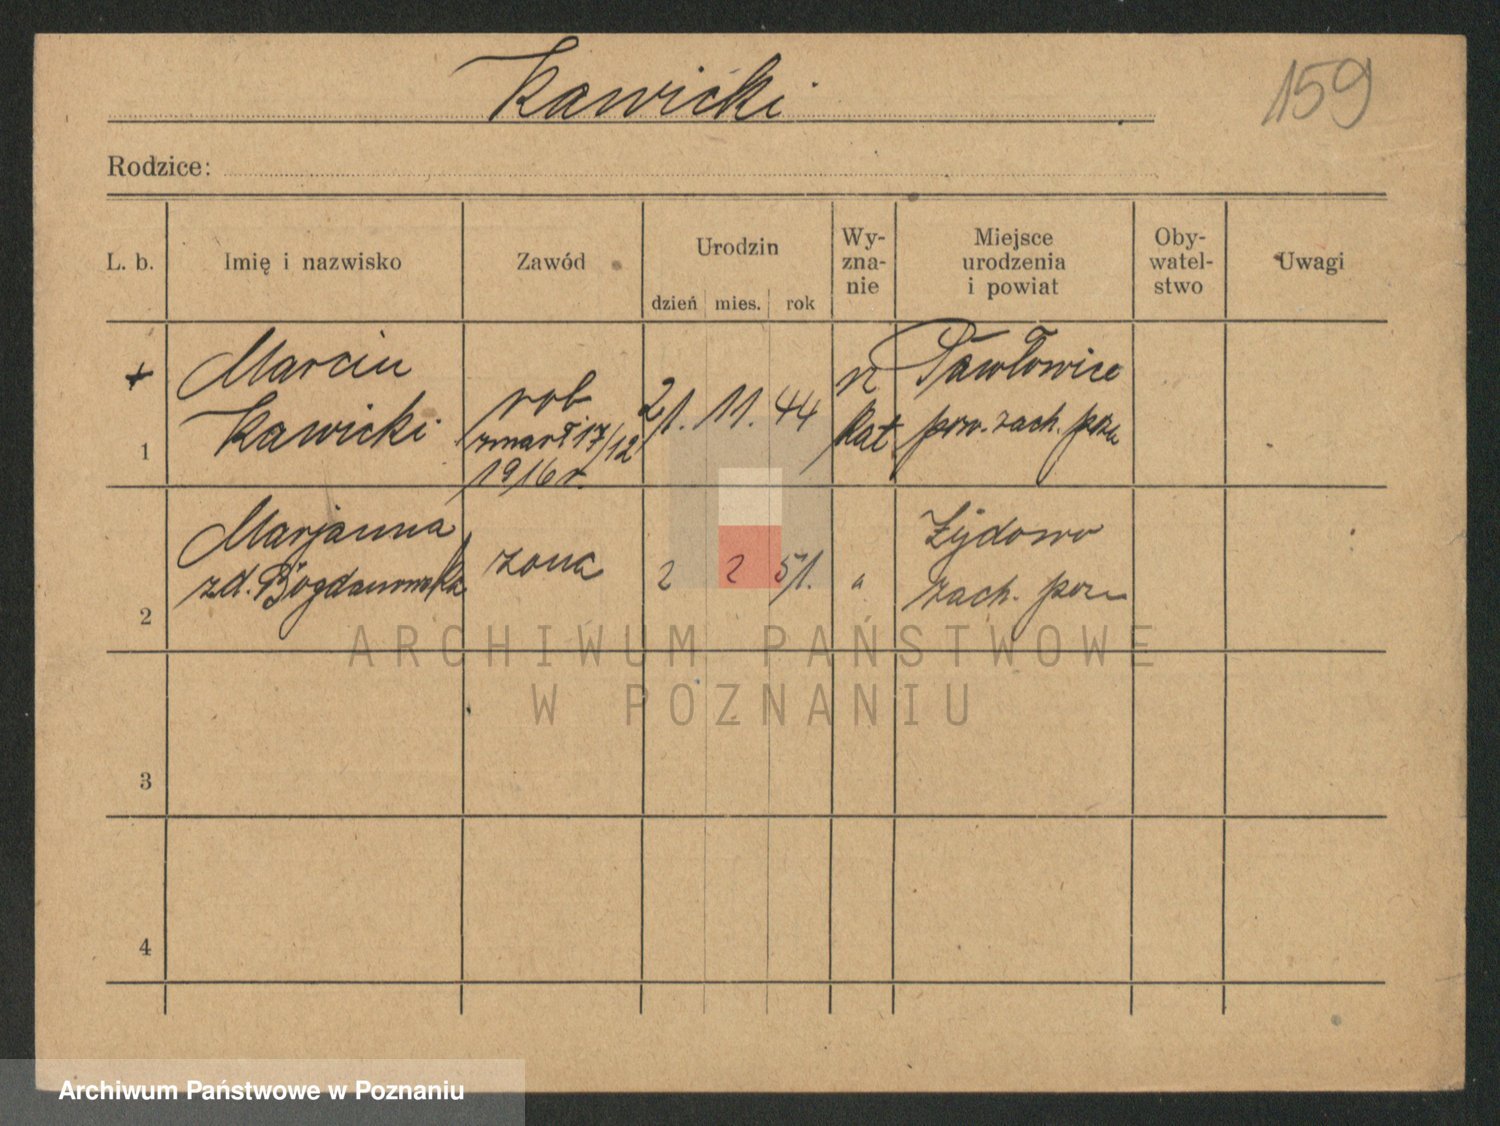 Kawicki
159
Rodzice:
L. b. Imię i nazwisko Zawód Urodzin Wy-zna-nie Miejsce urodzenia i powiat Oby-watel-stwo Uwagi
dzień mies. rok
+ 1 Marcin Kawicki rob zmarł 17/12 1916 r. 2/1. 11. 44 rz Kat Pawłowice pow. zach. pozn
2 Marjanna zd. Bogdanowska żona 2 2 51. " Żydowo zach. pozn
3
4
ARCHIWUM PAŃSTWOWE
W POZNANIU
Archiwum Państwowe w Poznaniu